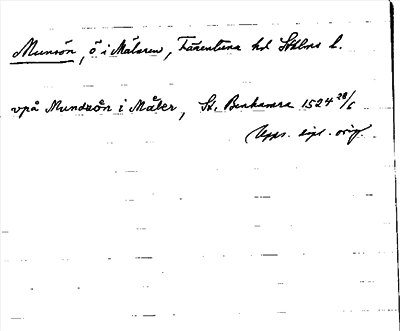 Munsön, ö i Mälaren, Färentuna hd Sthlms l.
vpå Mundzön i Mäler, St. Benkamra 1524 28/6
Upps. orig.